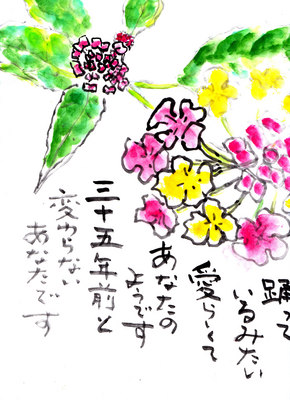 踊って
いるみたい
愛らしくて
あなたの
ようです
三十五年前と
変わらない
あなたです